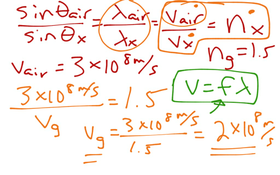 sinθair/sinθx = λair/λx = Vair/Vx = nx
ng = 1.5
Vair = 3×10⁸ m/s
V = fλ
3×10⁸ m/s / Vg = 1.5
Vg = 3×10⁸ m/s / 1.5 = 2×10⁸ m/s